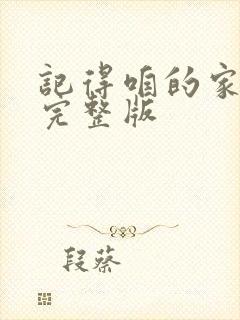 記得咱的家
完整版
段蔡